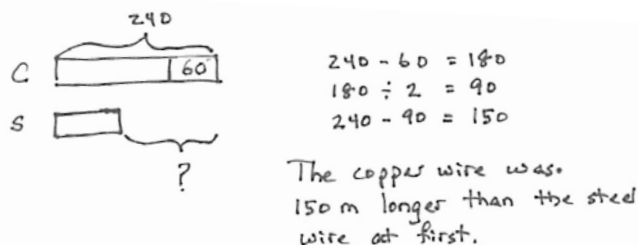 240
C 60
S
?
240 - 60 = 180
180 ÷ 2 = 90
240 - 90 = 150
The copper wire was.
150 m longer than the steel
wire at first.